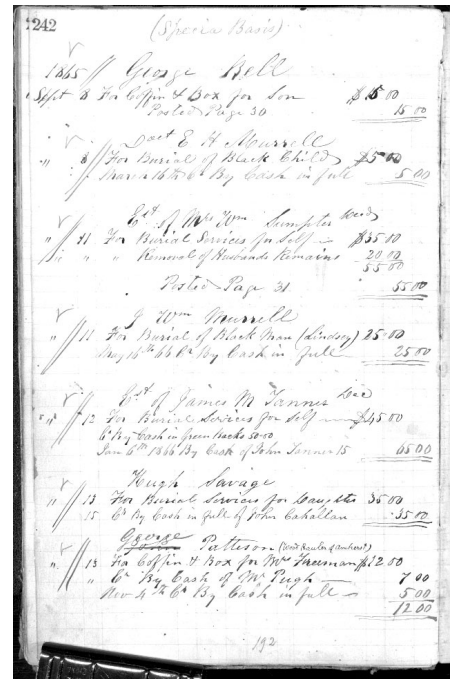 242
(Specie Basis)
1865 // George Bell
Sept 8 For Coffin & Box for Son $15 00
Posted Page 30 15 00
Doct E H Murrell
" 8 For Burial of Black Child $5 00
16th Cr By Cash in full 5 00
Est of Mrs Wm Sumpter Decd
" 11 For Burial Services for Self $35 00
" " " Removal of Husbands Remains 20 00
55 00
Posted Page 31 55 00
J Wm Murrell
" 11 For Burial of Black Man (Lindsey) 25 00
May 16th 66 Cr By Cash in full 25 00
Est of James M Tanner Dec
" 12 For Burial Services for Self $45 00
Cr By Cash in Green Backs 50 00
Jan 6th 1866 By Cash of John Tanner 15 65 00
Hugh Savage
" 13 For Burial Services for Daughter 35 00
15 Cr By Cash in full of John Cahallan 35 00
George Patteson
" 13 For Coffin & Box for Mrs Freeman $12 00
" Cr By Cash of Mr Pugh 7 00
Nov 4th Cr By Cash in full 5 00
12 00
192